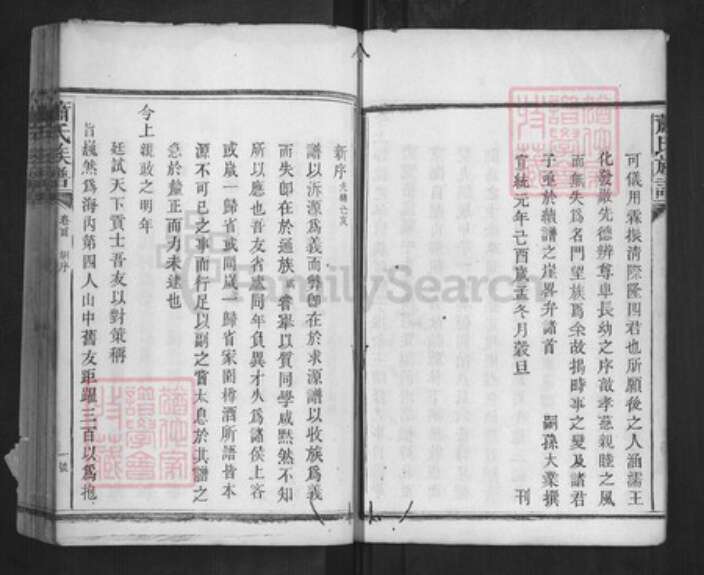 蕭氏族譜
可儀用霖振清際隆四君也所願後之人涵濡王
化發激先德辨尊卑長幼之序敵孝慈親睦之風
而無失爲名門望族爲余故揭時事之變及諸君
子重於續譜之崖畧弁諸首
宣統元年己酉歲孟冬月穀旦
嗣孫大業撰
刊
新序 光緒乙亥
譜以泝源爲義而弊卽在於求源譜以收族爲義
而失卽在於通族嘗舉以質同學咸黙然不知
所以應也吾友省盧同年負異才久爲諸侯上客
或歲一歸省或間歲一歸省家園樽酒所語皆本
源不可已之事而行足以副之嘗太息於其譜之
急於釐正而力未逮也
今上親政之明年
廷試天下貢士吾友以對策稱
旨巍然爲海內第四人山中舊友距躍三百以爲抱
蕭氏族譜
卷首
新序
一號
FamilySearch